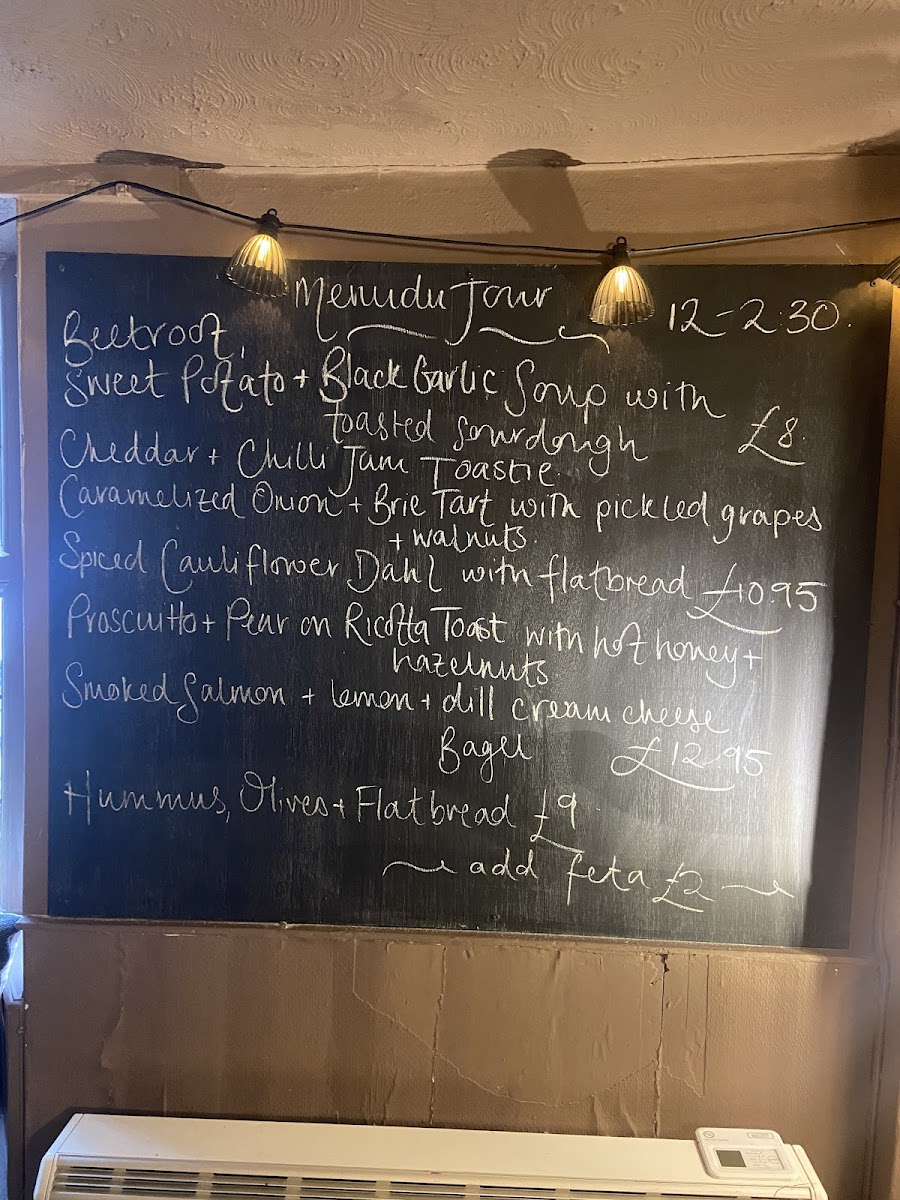 Menu du Jour 12-2:30.
Beetroot,
Sweet Potato + Black Garlic Soup with
toasted sourdough £8.
Cheddar + Chilli Jam Toastie.
Caramelized Onion + Brie Tart with pickled grapes
+ walnuts.
Spiced Cauliflower Dahl with flatbread £10.95
Proscuitto + Pear on Ricotta Toast with hot honey +
hazelnuts
Smoked Salmon + lemon + dill cream cheese
Bagel £12.95
Hummus, Olives + Flatbread £9
add feta £2